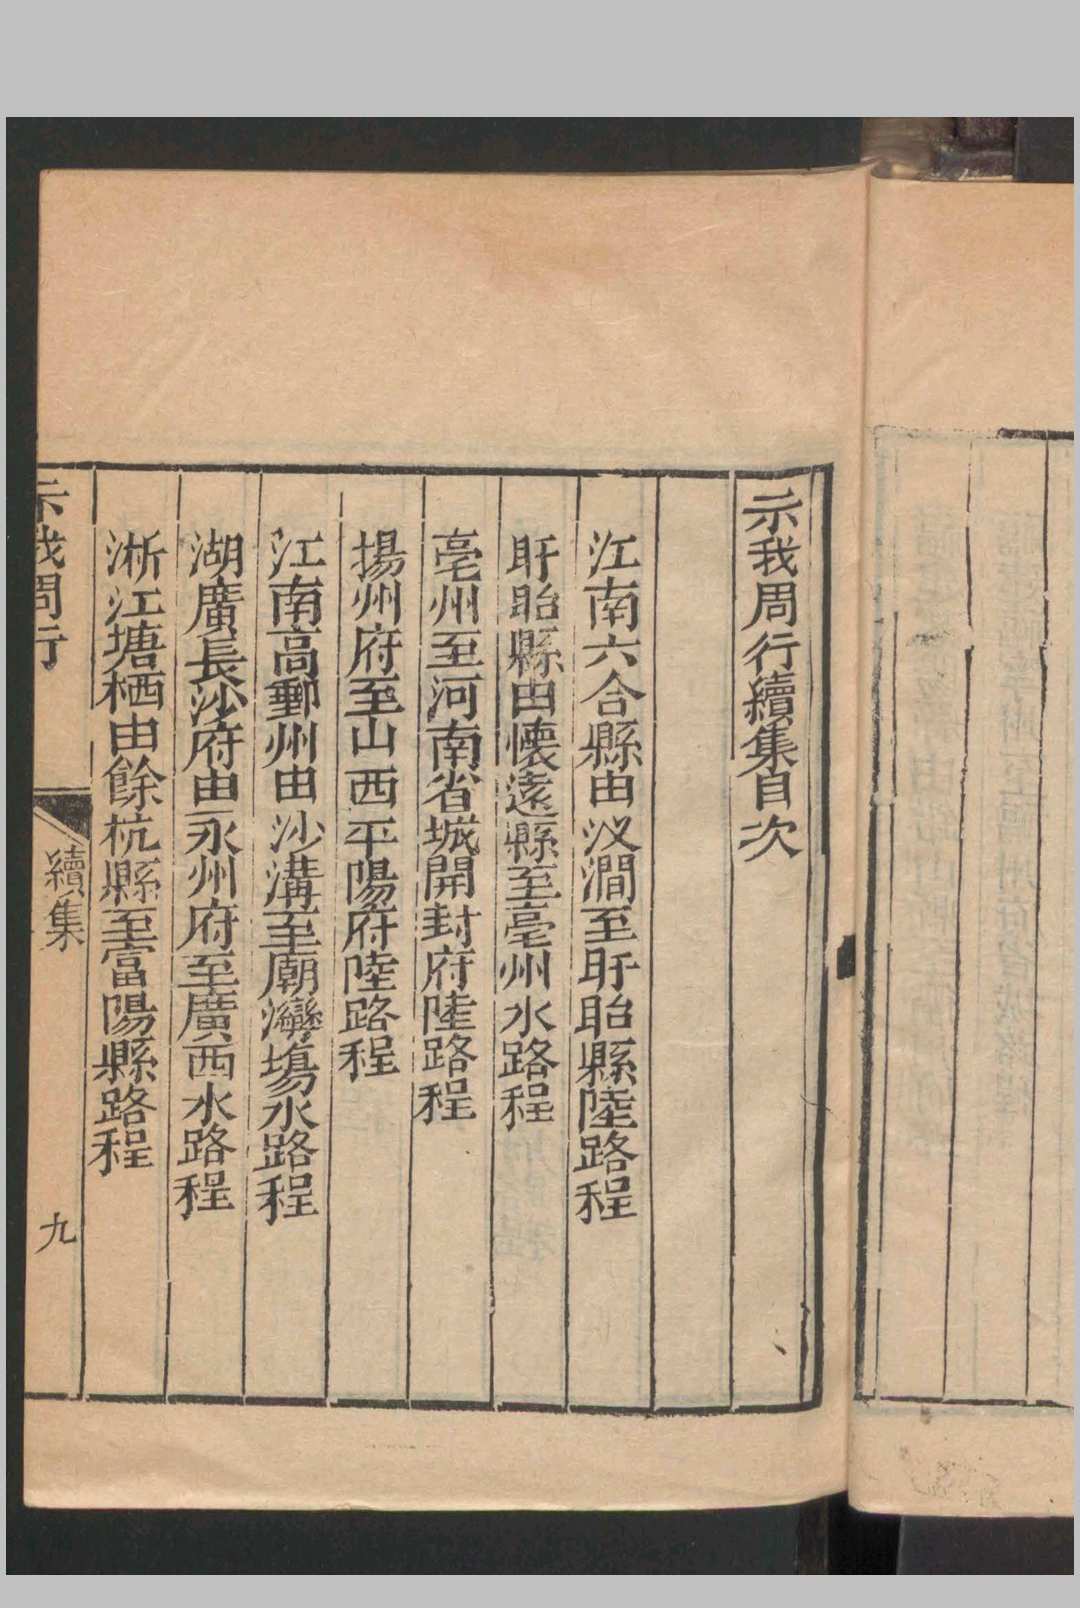 示我周行續集目次
江南六合縣由汊澗至盱眙縣陸路程
盱眙縣由懷遠縣至亳州水路程
亳州至河南省城開封府陸路程
揚州府至山西平陽府陸路程
江南高郵州由沙溝至廟灣塲水路程
湖廣長沙府由永州府至廣西水路程
淅江塘栖由餘杭縣至富陽縣路程
示我周行
續集
九